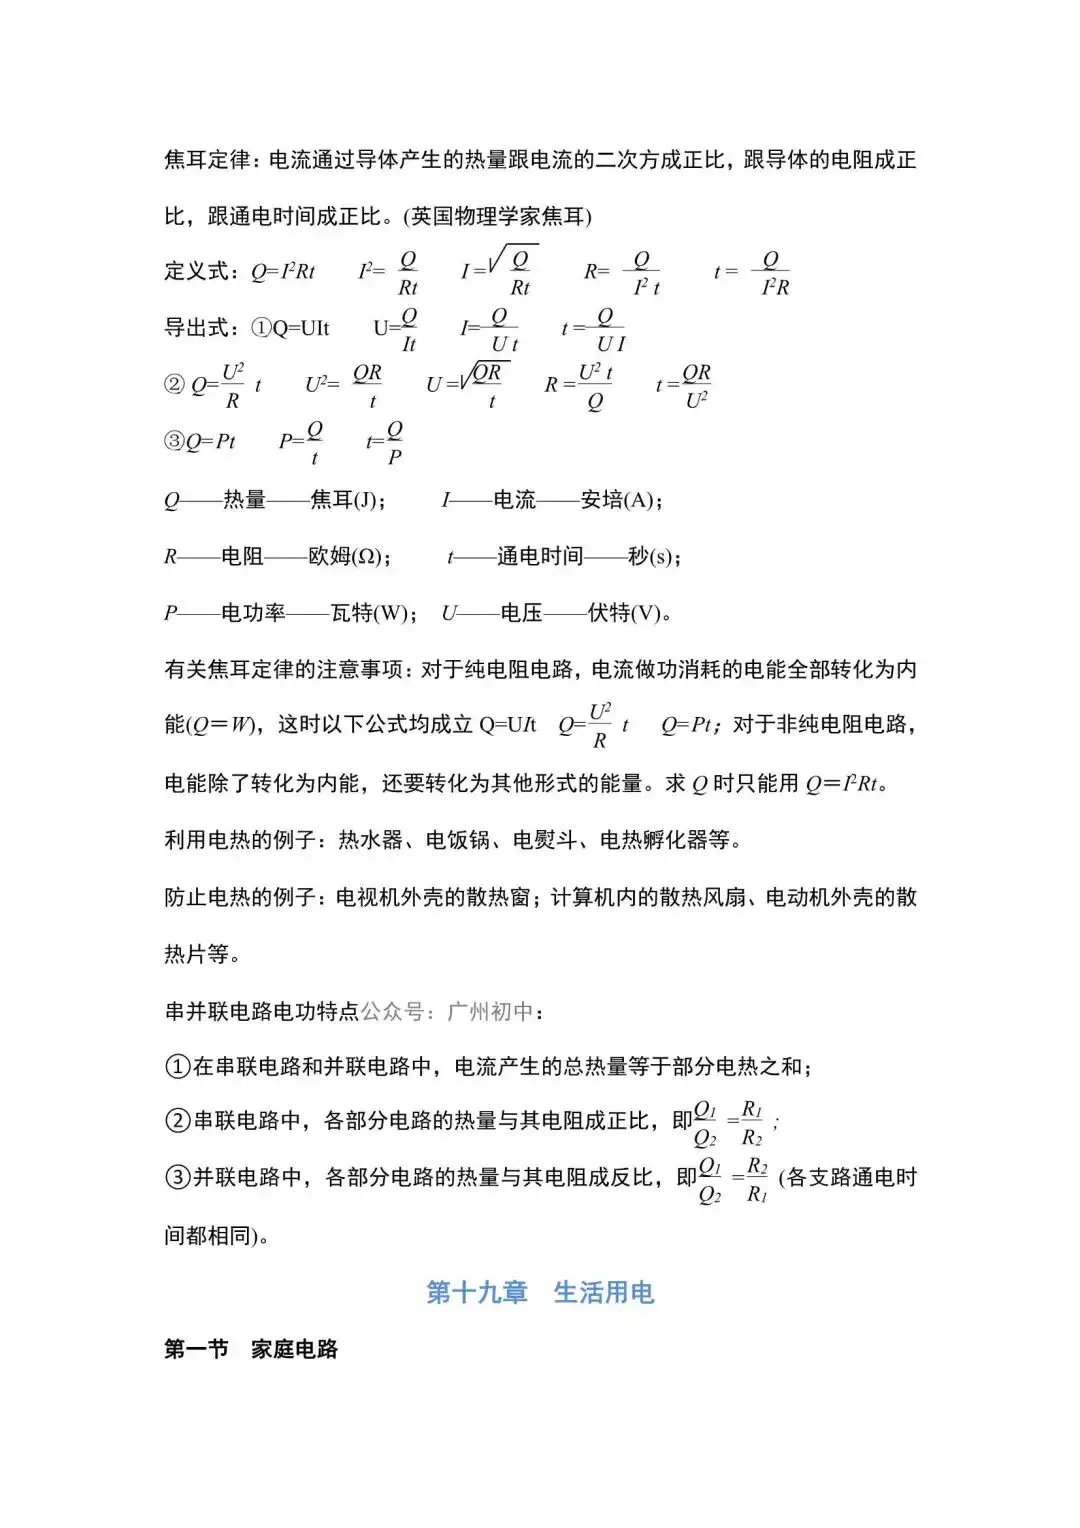 焦耳定律：电流通过导体产生的热量跟电流的二次方成正比，跟导体的电阻成正
比，跟通电时间成正比。(英国物理学家焦耳)
定义式：Q=I²Rt　I²=Q/Rt　I=√(Q/Rt)　R=Q/I²t　t=Q/I²R
导出式：①Q=UIt　U=Q/It　I=Q/Ut　t=Q/UI
②Q=U²/R t　U²=QR/t　U=√(QR/t)　R=U²t/Q　t=QR/U²
③Q=Pt　P=Q/t　t=Q/P
Q——热量——焦耳(J)；　I——电流——安培(A)；
R——电阻——欧姆(Ω)；　t——通电时间——秒(s)；
P——电功率——瓦特(W)；　U——电压——伏特(V)。
有关焦耳定律的注意事项：对于纯电阻电路，电流做功消耗的电能全部转化为内
能(Q＝W)，这时以下公式均成立 Q=UIt　Q=U²/R t　Q=Pt；对于非纯电阻电路，
电能除了转化为内能，还要转化为其他形式的能量。求 Q 时只能用 Q＝I²Rt。
利用电热的例子：热水器、电饭锅、电熨斗、电热孵化器等。
防止电热的例子：电视机外壳的散热窗；计算机内的散热风扇、电动机外壳的散
热片等。
串并联电路电功特点公众号：广州初中：
①在串联电路和并联电路中，电流产生的总热量等于部分电热之和；
②串联电路中，各部分电路的热量与其电阻成正比，即Q₁/Q₂=R₁/R₂；
③并联电路中，各部分电路的热量与其电阻成反比，即Q₁/Q₂=R₂/R₁ (各支路通电时
间都相同)。
第十九章　生活用电
第一节　家庭电路